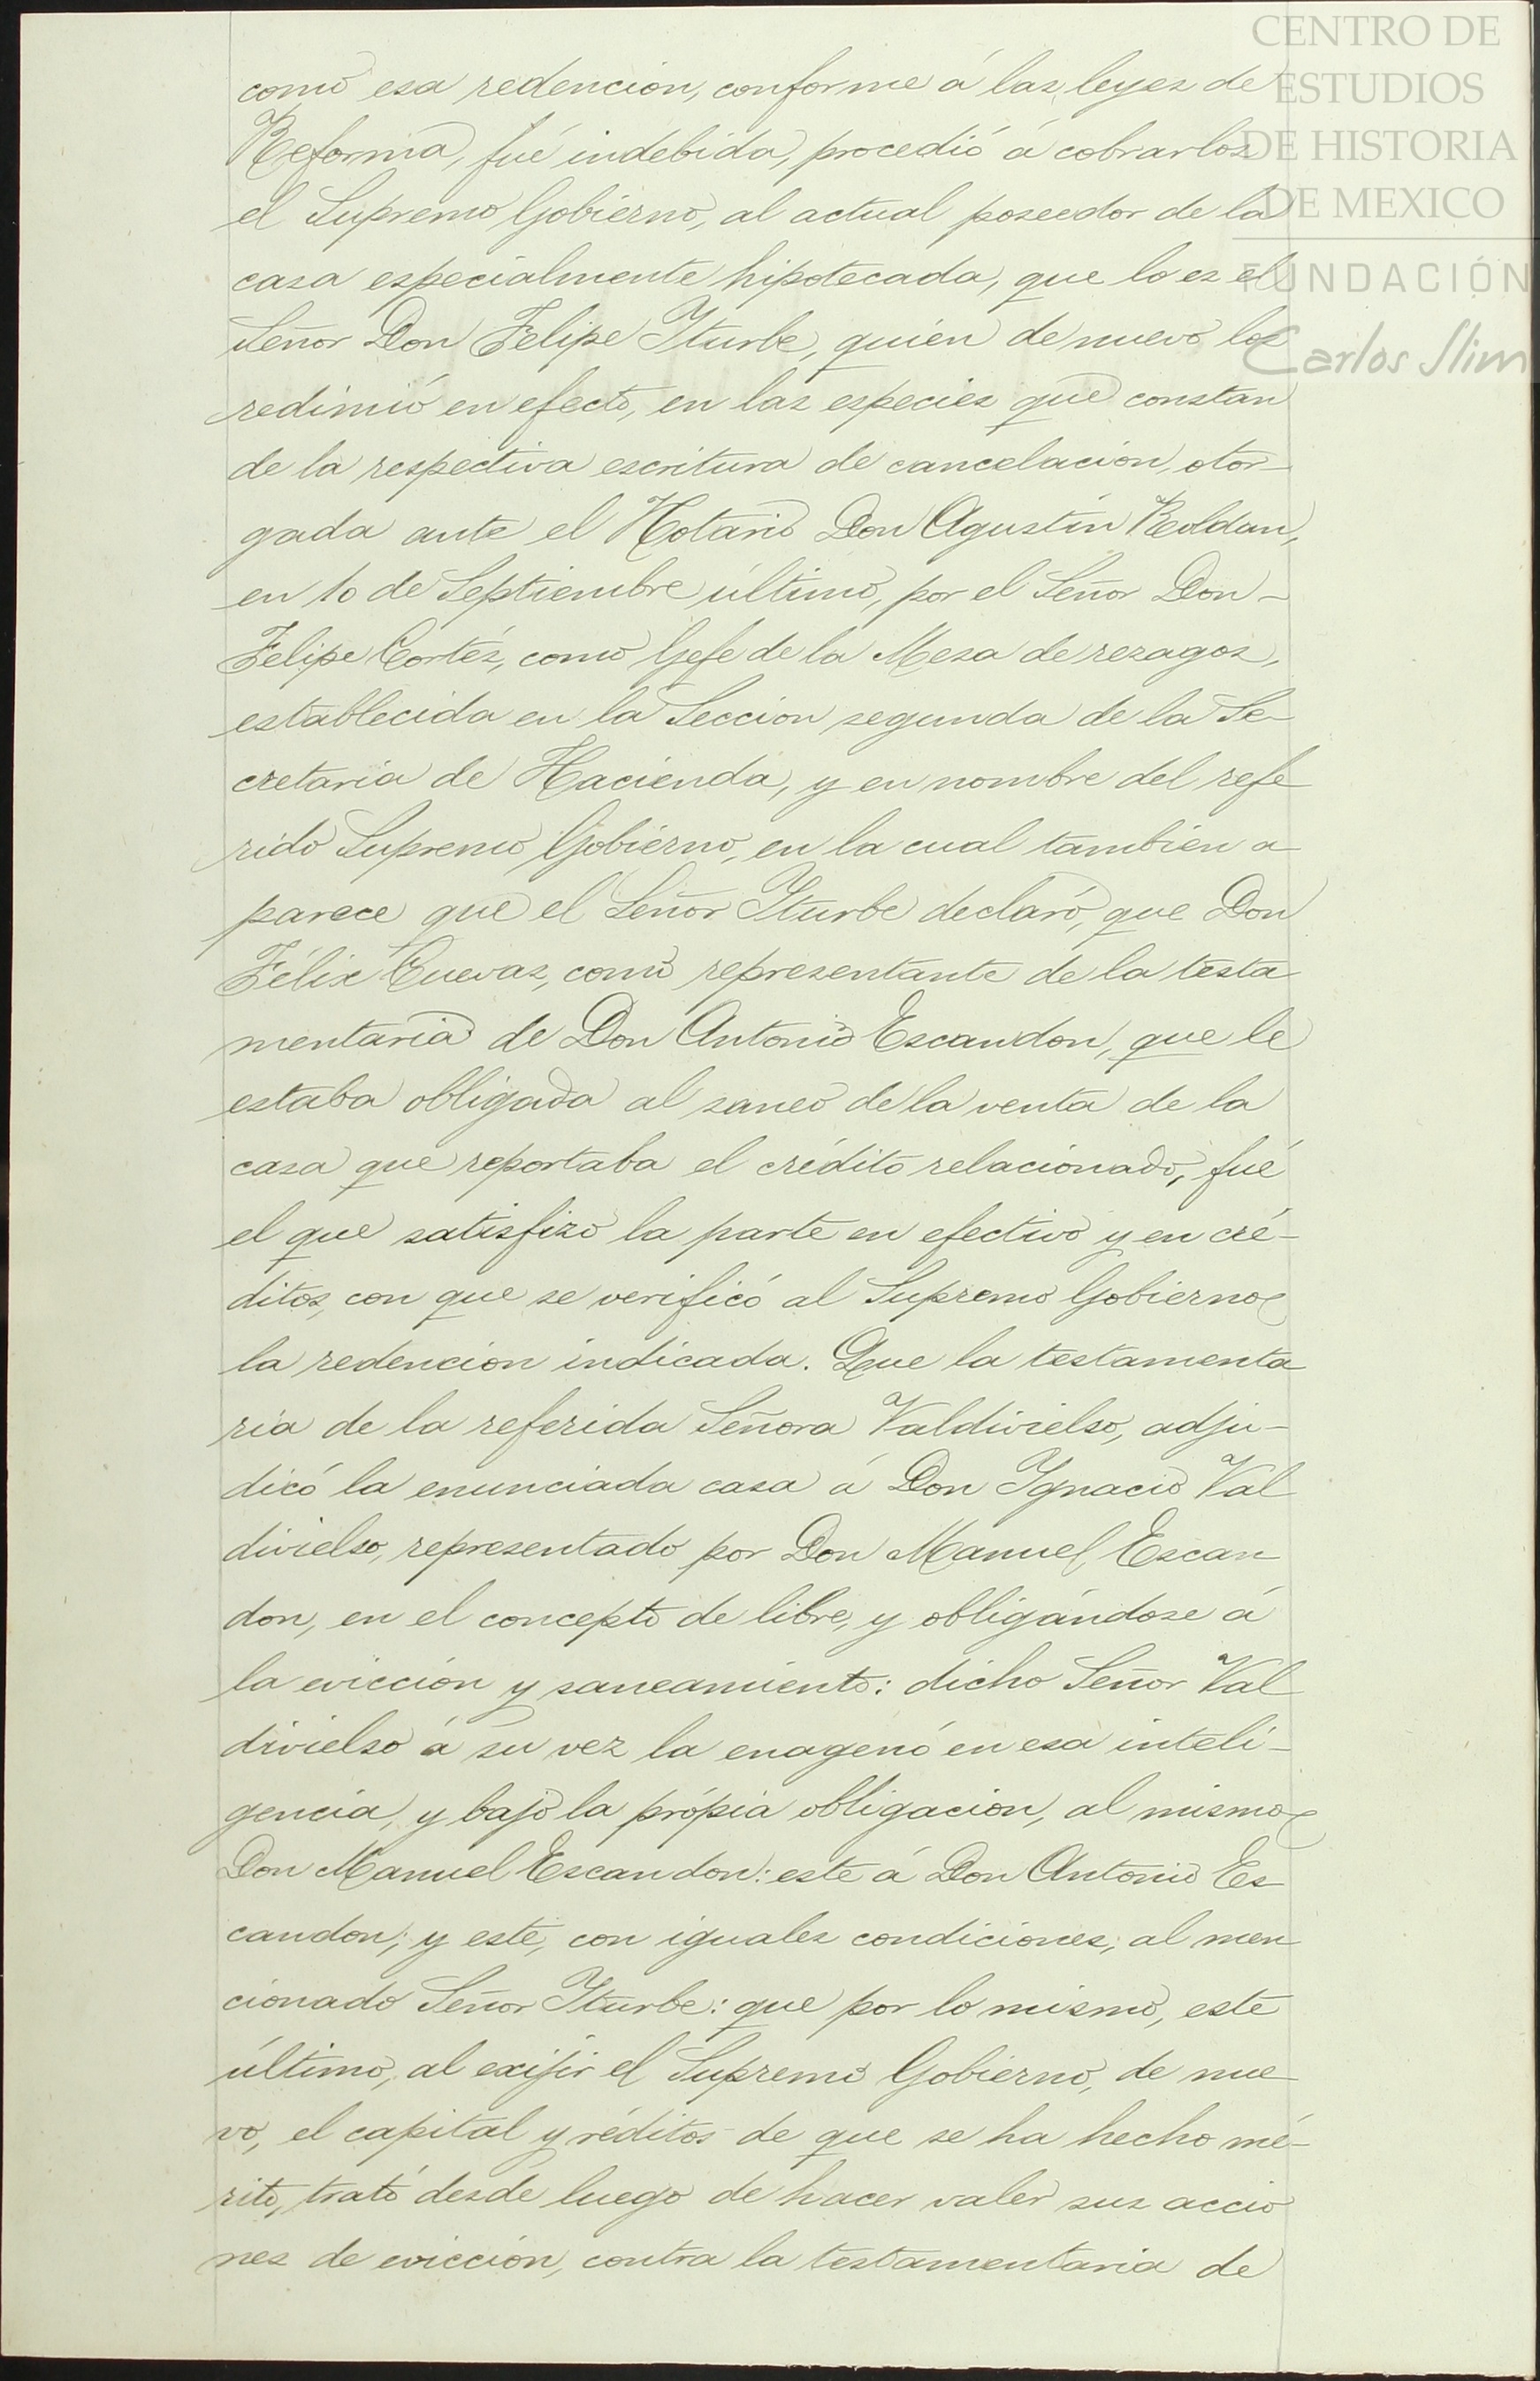 CENTRO DE
ESTUDIOS
DE HISTORIA
DE MEXICO
FUNDACIÓN
Carlos Slim
como esa redencion, conforme á las leyes de
Reforma, fué indebida, procedió á cobrarlos
el Supremo Gobierno, al actual poseedor de la
casa especialmente hipotecada, que lo es el
Señor Don Felipe Yturbe, quien de nuevo los
redimió en efecto, en las especies que constan
de la respectiva escritura de cancelacion, otor-
gada ante el Notario Don Agustin Roldan,
en 10 de Septiembre último, por el Señor Don-
Felipe Cortés, como Gefe de la Mesa de rezagos,
establecida en la Seccion segunda de la Se-
cretaria de Hacienda, y en nombre del refe
rido Supremo Gobierno, en la cual tambien a
parece que el Señor Yturbe declaró, que Don
Félix Cuevas, como representante de la testa
mentaria de Don Antonio Escandon, que le
estaba obligada al saneo de la venta de la
casa que reportaba el crédito relacionado, fué
el que satisfizo la parte en efectivo y en cré-
ditos, con que se verificó al Supremo Gobierno
la redencion indicada. Que la testamenta
ria de la referida Señora Valdivielso, adju-
dicó la enunciada casa á Don Ygnacio Val
divielso, representado por Don Manuel Escan
don, en el concepto de libre, y obligándose á
la eviccion y saneamiento: dicho Señor Val
divielso á su vez la enagenó en esa inteli-
gencia, y bajo la própia obligacion, al mismo
Don Manuel Escandon: este á Don Antonio Es
candon; y este, con iguales condiciones, al men
cionado Señor Yturbe: que por lo mismo, este
último, al exijir el Supremo Gobierno, de nue
vo, el capital y réditos de que se ha hecho mé-
rito, trató desde luego de hacer valer sus accio
nes de eviccion, contra la testamentaria de